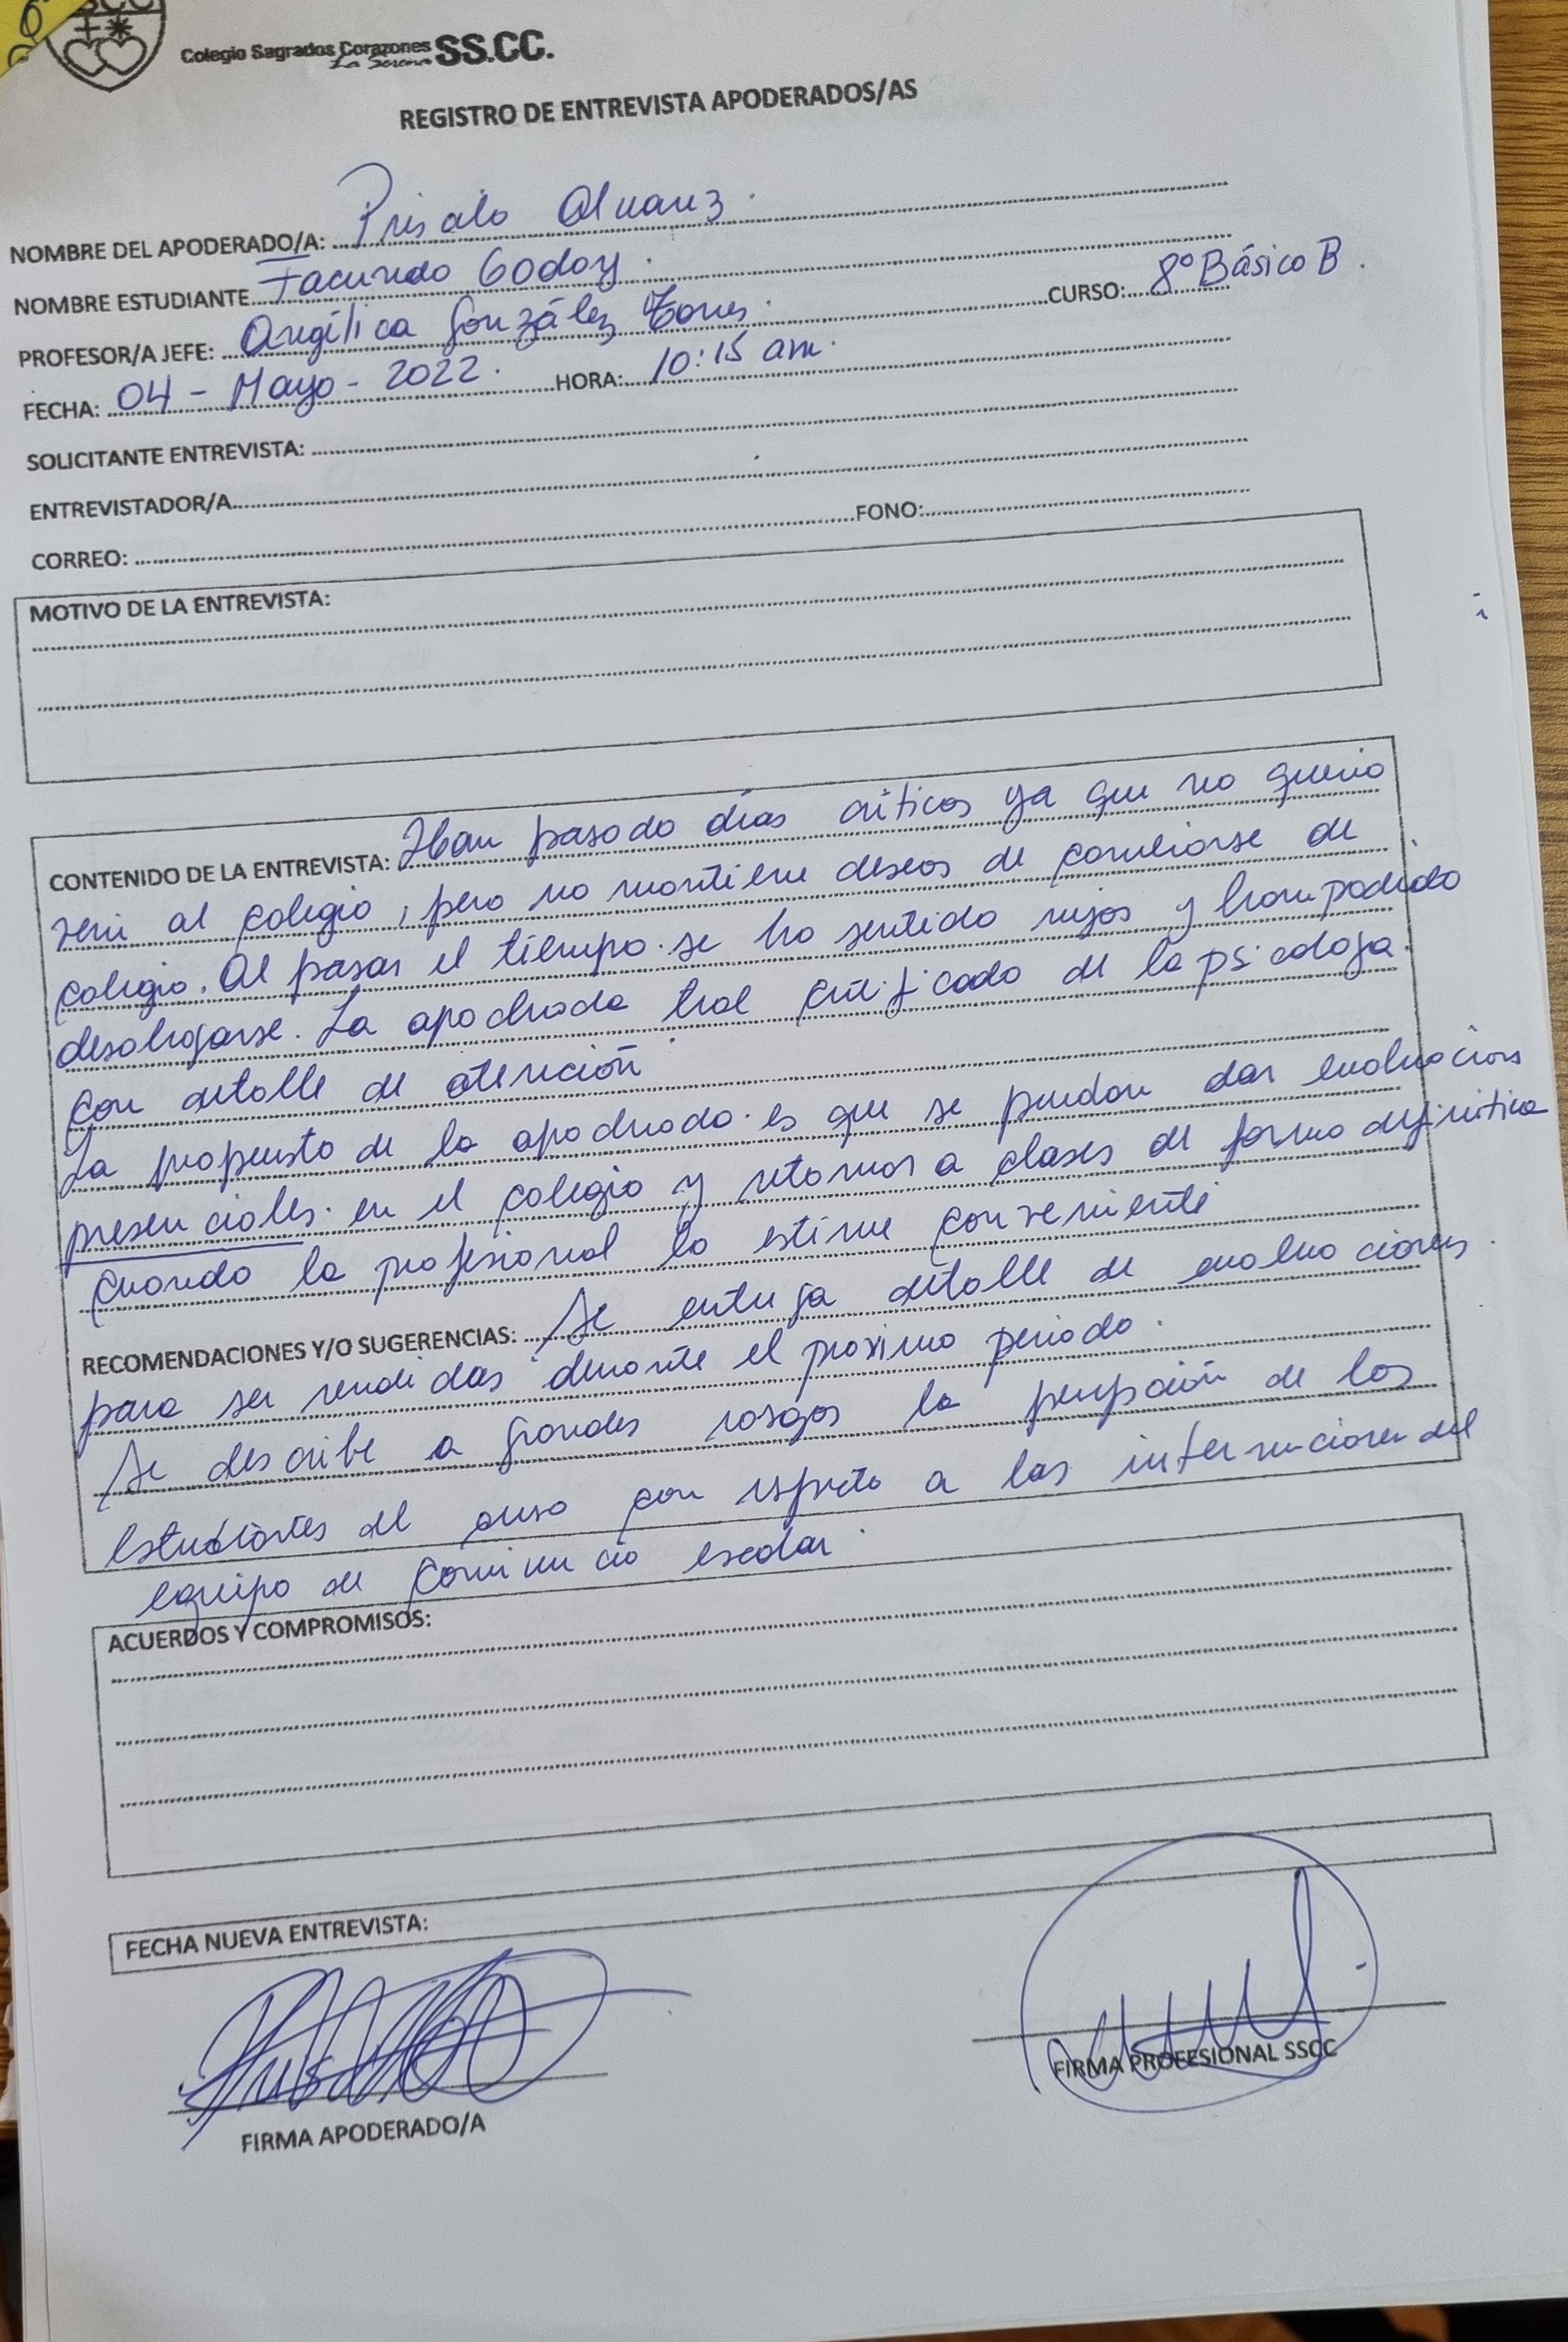 SS.CC.
Colegio Sagrados Corazones SS.CC.
La Serena
REGISTRO DE ENTREVISTA APODERADOS/AS
NOMBRE DEL APODERADO/A: Prisala Alvarez.
NOMBRE ESTUDIANTE Facundo Godoy.
PROFESOR/A JEFE: Angélica González Torres. CURSO: 8º Básico B.
FECHA: 04 - Mayo - 2022. HORA: 10:15 am.
SOLICITANTE ENTREVISTA:
ENTREVISTADOR/A
CORREO: FONO:
MOTIVO DE LA ENTREVISTA:
CONTENIDO DE LA ENTREVISTA: Han pasado días críticos ya que no quería
venir al colegio, pero no mantiene deseos de cambiarse de
colegio. Al pasar el tiempo se ha sentido mejor y han podido
desahogarse. La apoderada trae certificado de la psicologa.
con detalle de atención
La propuesta de la apoderada es que se puedan dar evaluacions
presenciales en el colegio y retornar a clases de forma definitiva
cuando la profesional lo estime conveniente
RECOMENDACIONES Y/O SUGERENCIAS: Se entrega detalle de evaluaciones.
para ser rendidas durante el proximo periodo.
Se describe a grandes rasgos la percepción de los
estudiantes del curso con respecto a las intervenciones del
equipo de convivencia escolar
ACUERDOS Y COMPROMISOS:
FECHA NUEVA ENTREVISTA:
FIRMA APODERADO/A
FIRMA PROFESIONAL SSCC